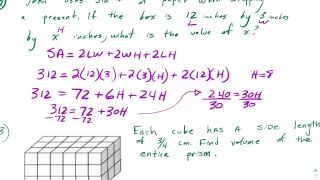 a present. If the box is 12 inches by 3 inches
L W
by x inches, what is the value of x?
H
SA = 2LW + 2WH + 2LH
312 = 2(12)(3) + 2(3)(H) + 2(12)(H) H=8
312 = 72 + 6H + 24H
312 = 72 + 30H
-72 -72
240 = 30H
30 30
3)
Each cube has a side length
of 3/4 cm. Find volume of the
entire prism.